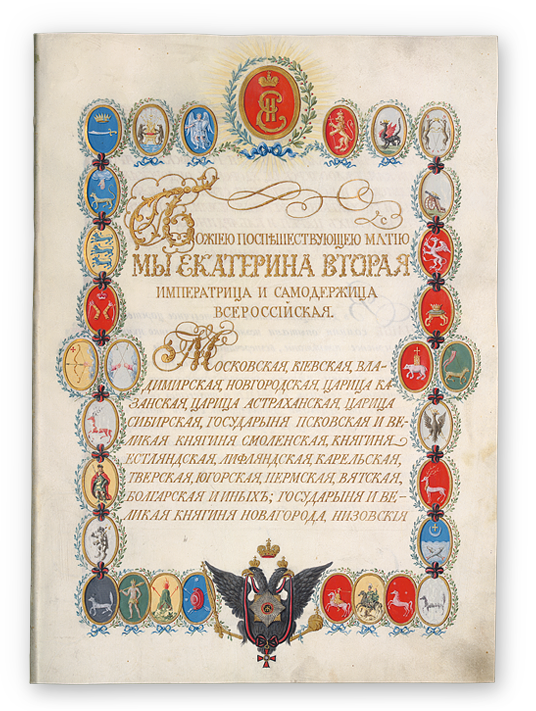 БОЖІЕЮ ПОСПѢШЕСТВУЮЩЕЮ МЛТІЮ
МЫ ЕКАТЕРИНА ВТОРАЯ
ИМПЕРАТРИЦА И САМОДЕРЖИЦА
ВСЕРОССІЙСКАЯ.
МОСКОВСКАЯ, КІЕВСКАЯ, ВЛА-
ДИМИРСКАЯ, НОВГОРОДСКАЯ, ЦАРИЦА КА
ЗАНСКАЯ, ЦАРИЦА АСТРАХАНСКАЯ, ЦАРИЦА
СИБИРСКАЯ, ГОСУДАРЫНЯ ПСКОВСКАЯ И ВЕ-
ЛИКАЯ КНЯГИНЯ СМОЛЕНСКАЯ, КНЯГИНЯ
ЕСТЛЯНДСКАЯ, ЛИФЛЯНДСКАЯ, КАРЕЛЬСКАЯ,
ТВЕРСКАЯ, ЮГОРСКАЯ, ПЕРМСКАЯ, ВЯТСКАЯ,
БОЛГАРСКАЯ И ИНЫХЪ; ГОСУДАРЫНЯ И ВЕ-
ЛИКАЯ КНЯГИНЯ НОВАГОРОДА, НИЗОВСКІЯ